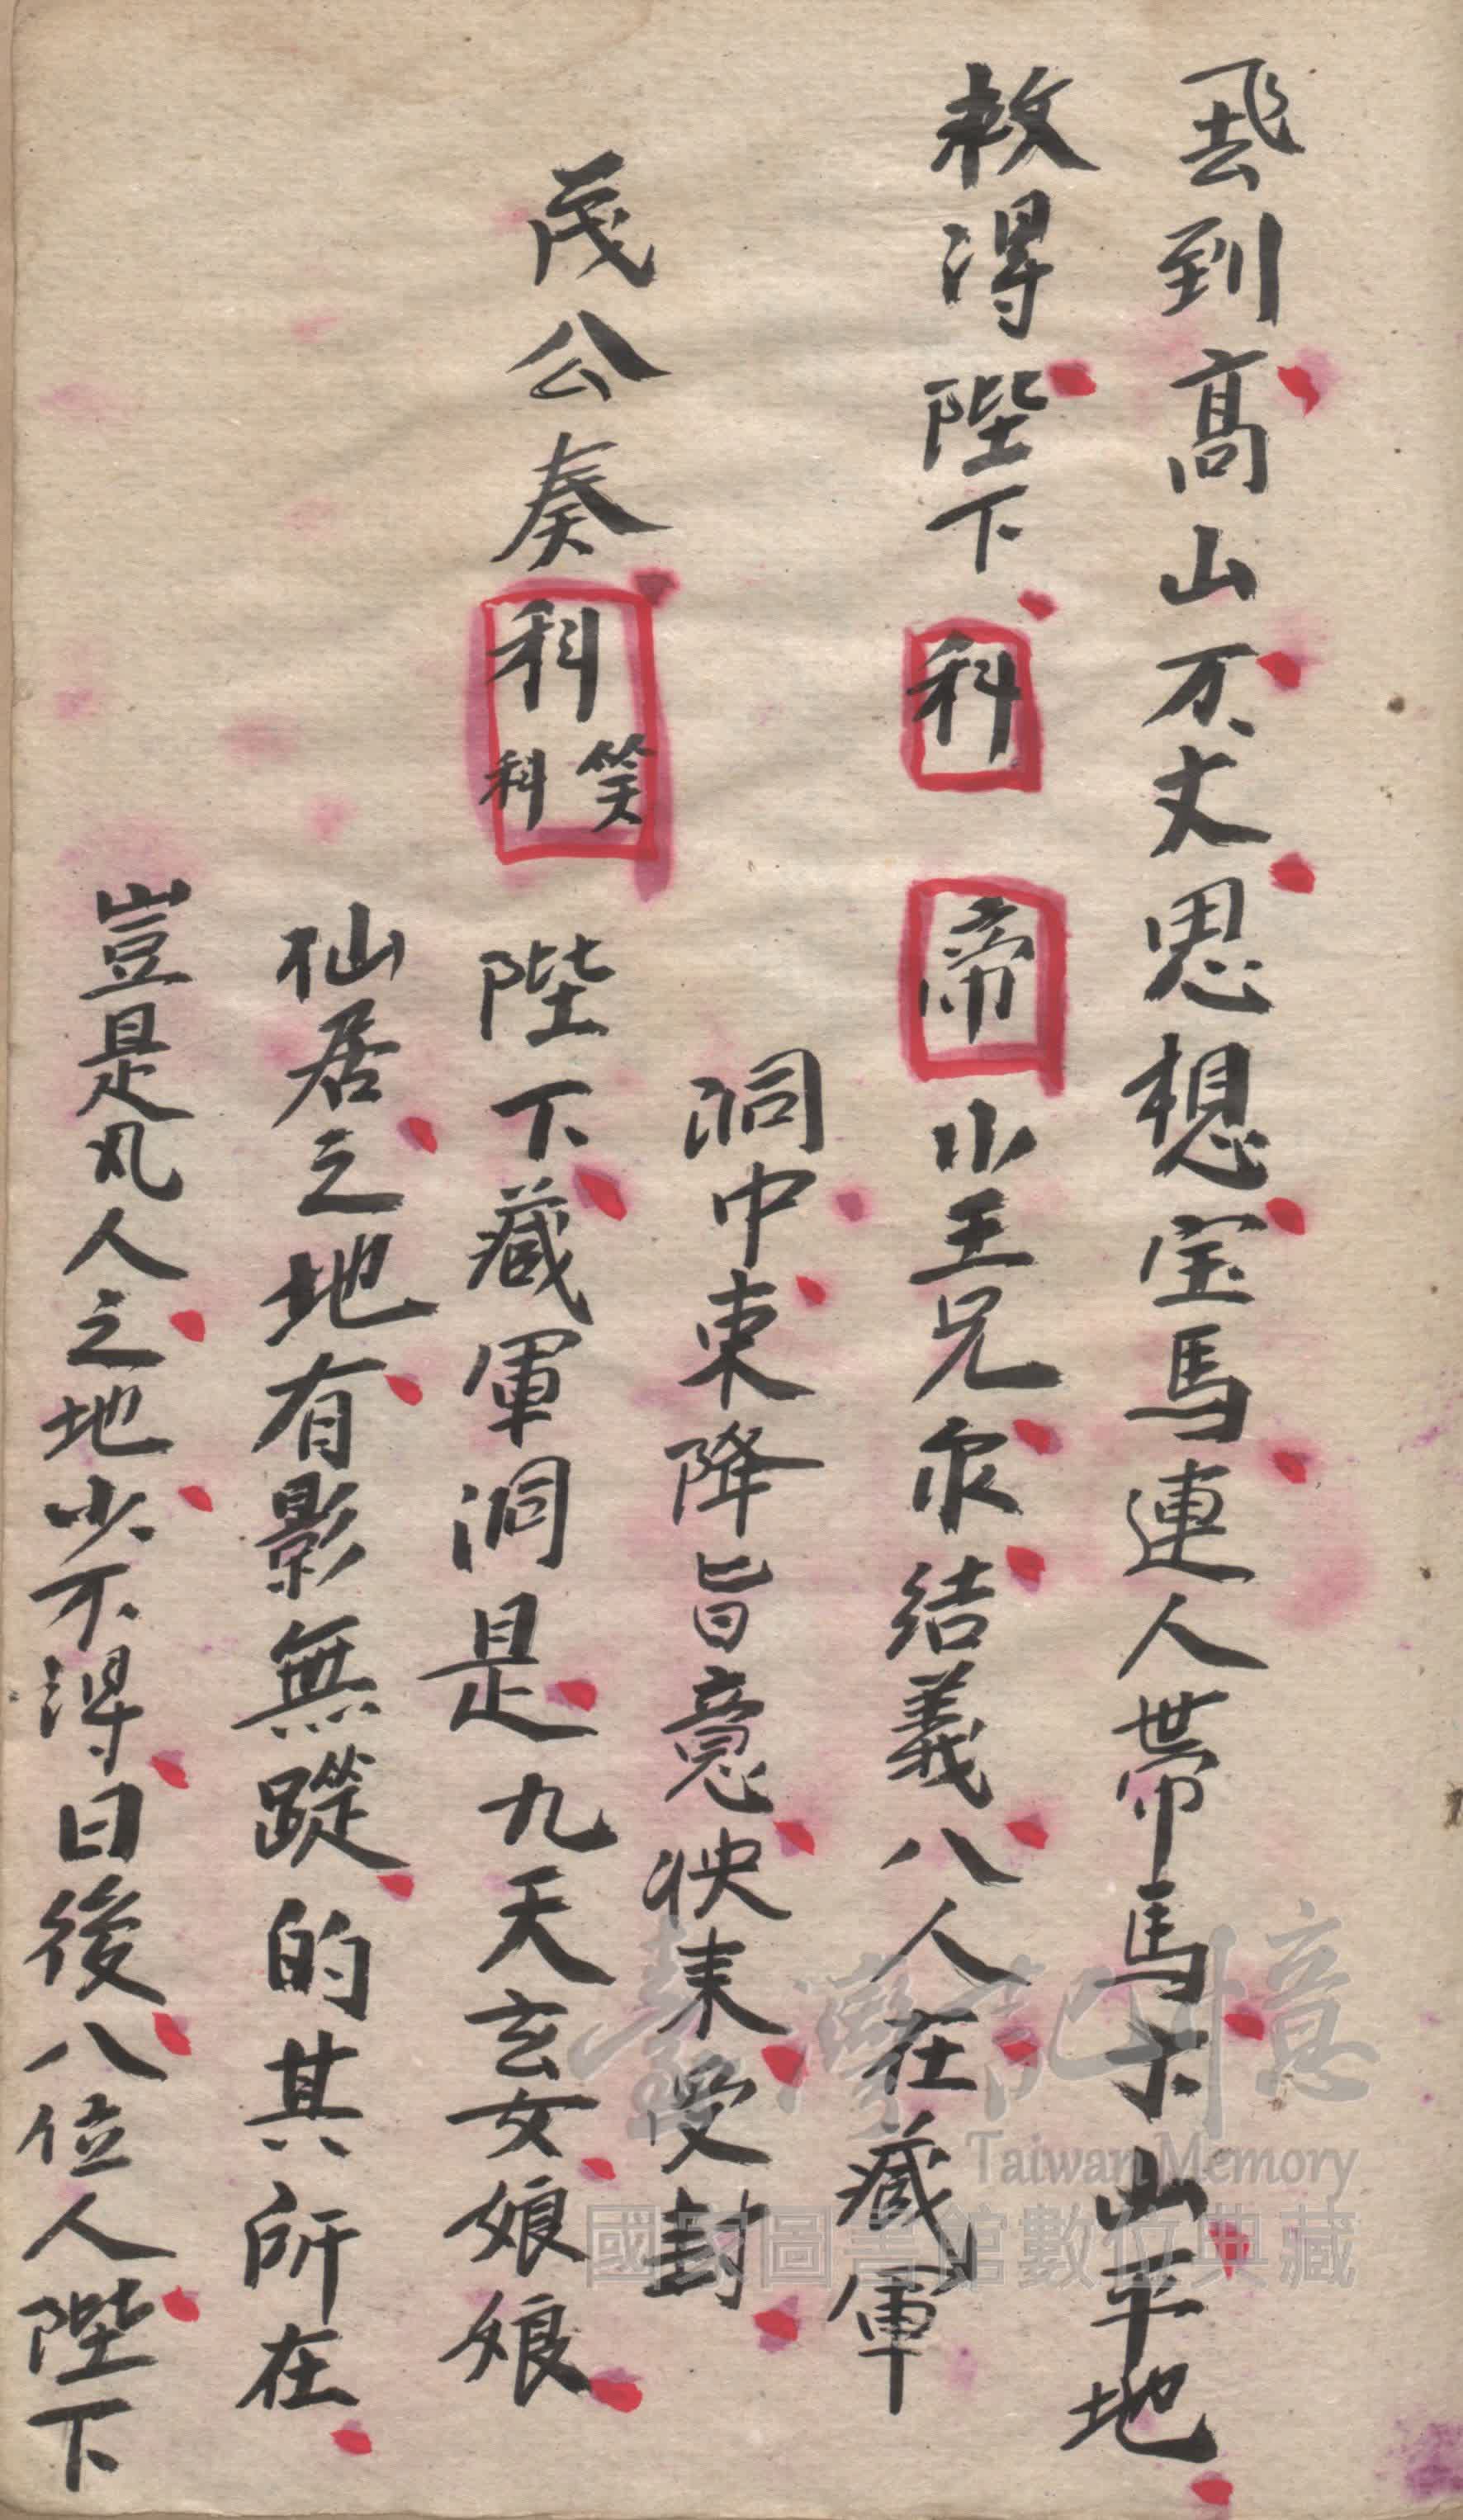 飛去到高山不丈思想宝馬連人帶馬卡山平地
救淂陛下科 帝 小王兄弟結義八人在藏軍
洞中東降旨意快來受封
茂公奏科笑科 陛下藏軍洞是九天玄女娘娘
仙居之地有影無蹤的其所在
豈是凡人之地少不淂日後八位人陛下
臺灣記憶
Taiwan Memory
國家圖書館數位典藏